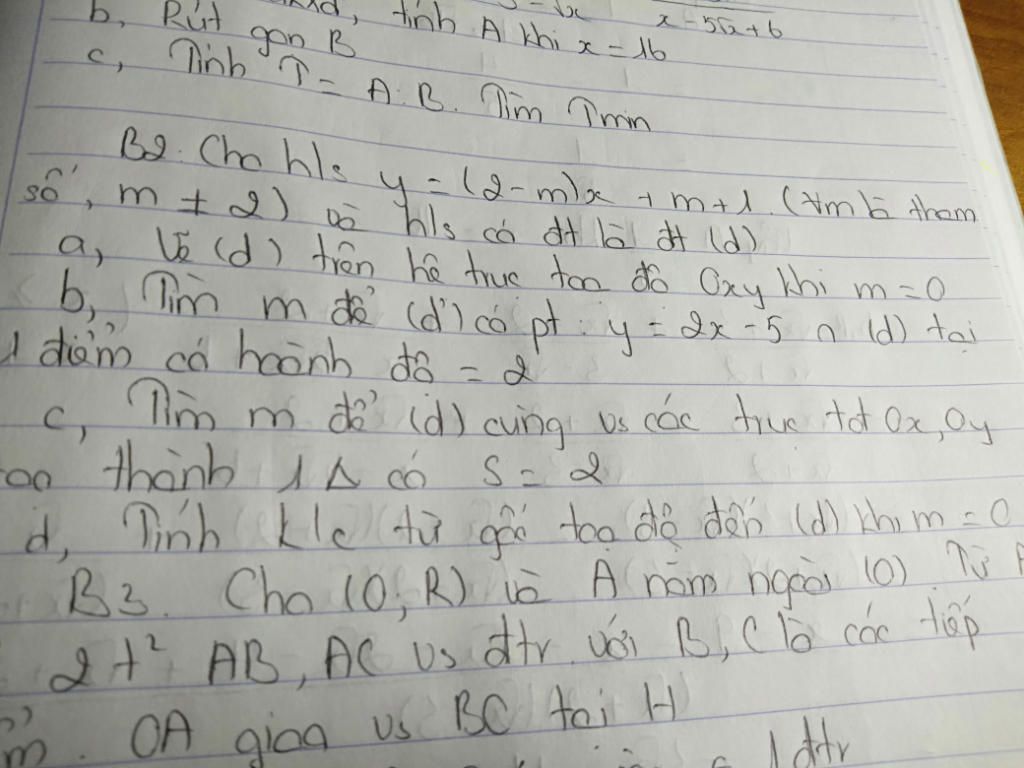 x-5√x+6
b, Rút gọn B, tính A khi x=16
c, Tính T = A.B. Tìm Tmin
B2. Cho h/s y = (2-m)x + m+1. (+m là tham
số, m ≠ 2) và h/s có đt là đt (d)
a, Vẽ (d) trên hệ trục toạ độ Oxy khi m=0
b, Tìm m để (d') có pt: y = 2x-5 ∩ (d) tại
1 điểm có hoành độ = 2
c, Tìm m để (d) cùng vs các trục tđ Ox, Oy
tạo thành 1 Δ có S = 2
d, Tính k/c từ gốc toạ độ đến (d) khi m=0
B3. Cho (O; R) và A nằm ngoài (O). Từ A
2 t² AB, AC vs đtr với B, C là các tiếp
OA giao vs BC tại H
1 đtr